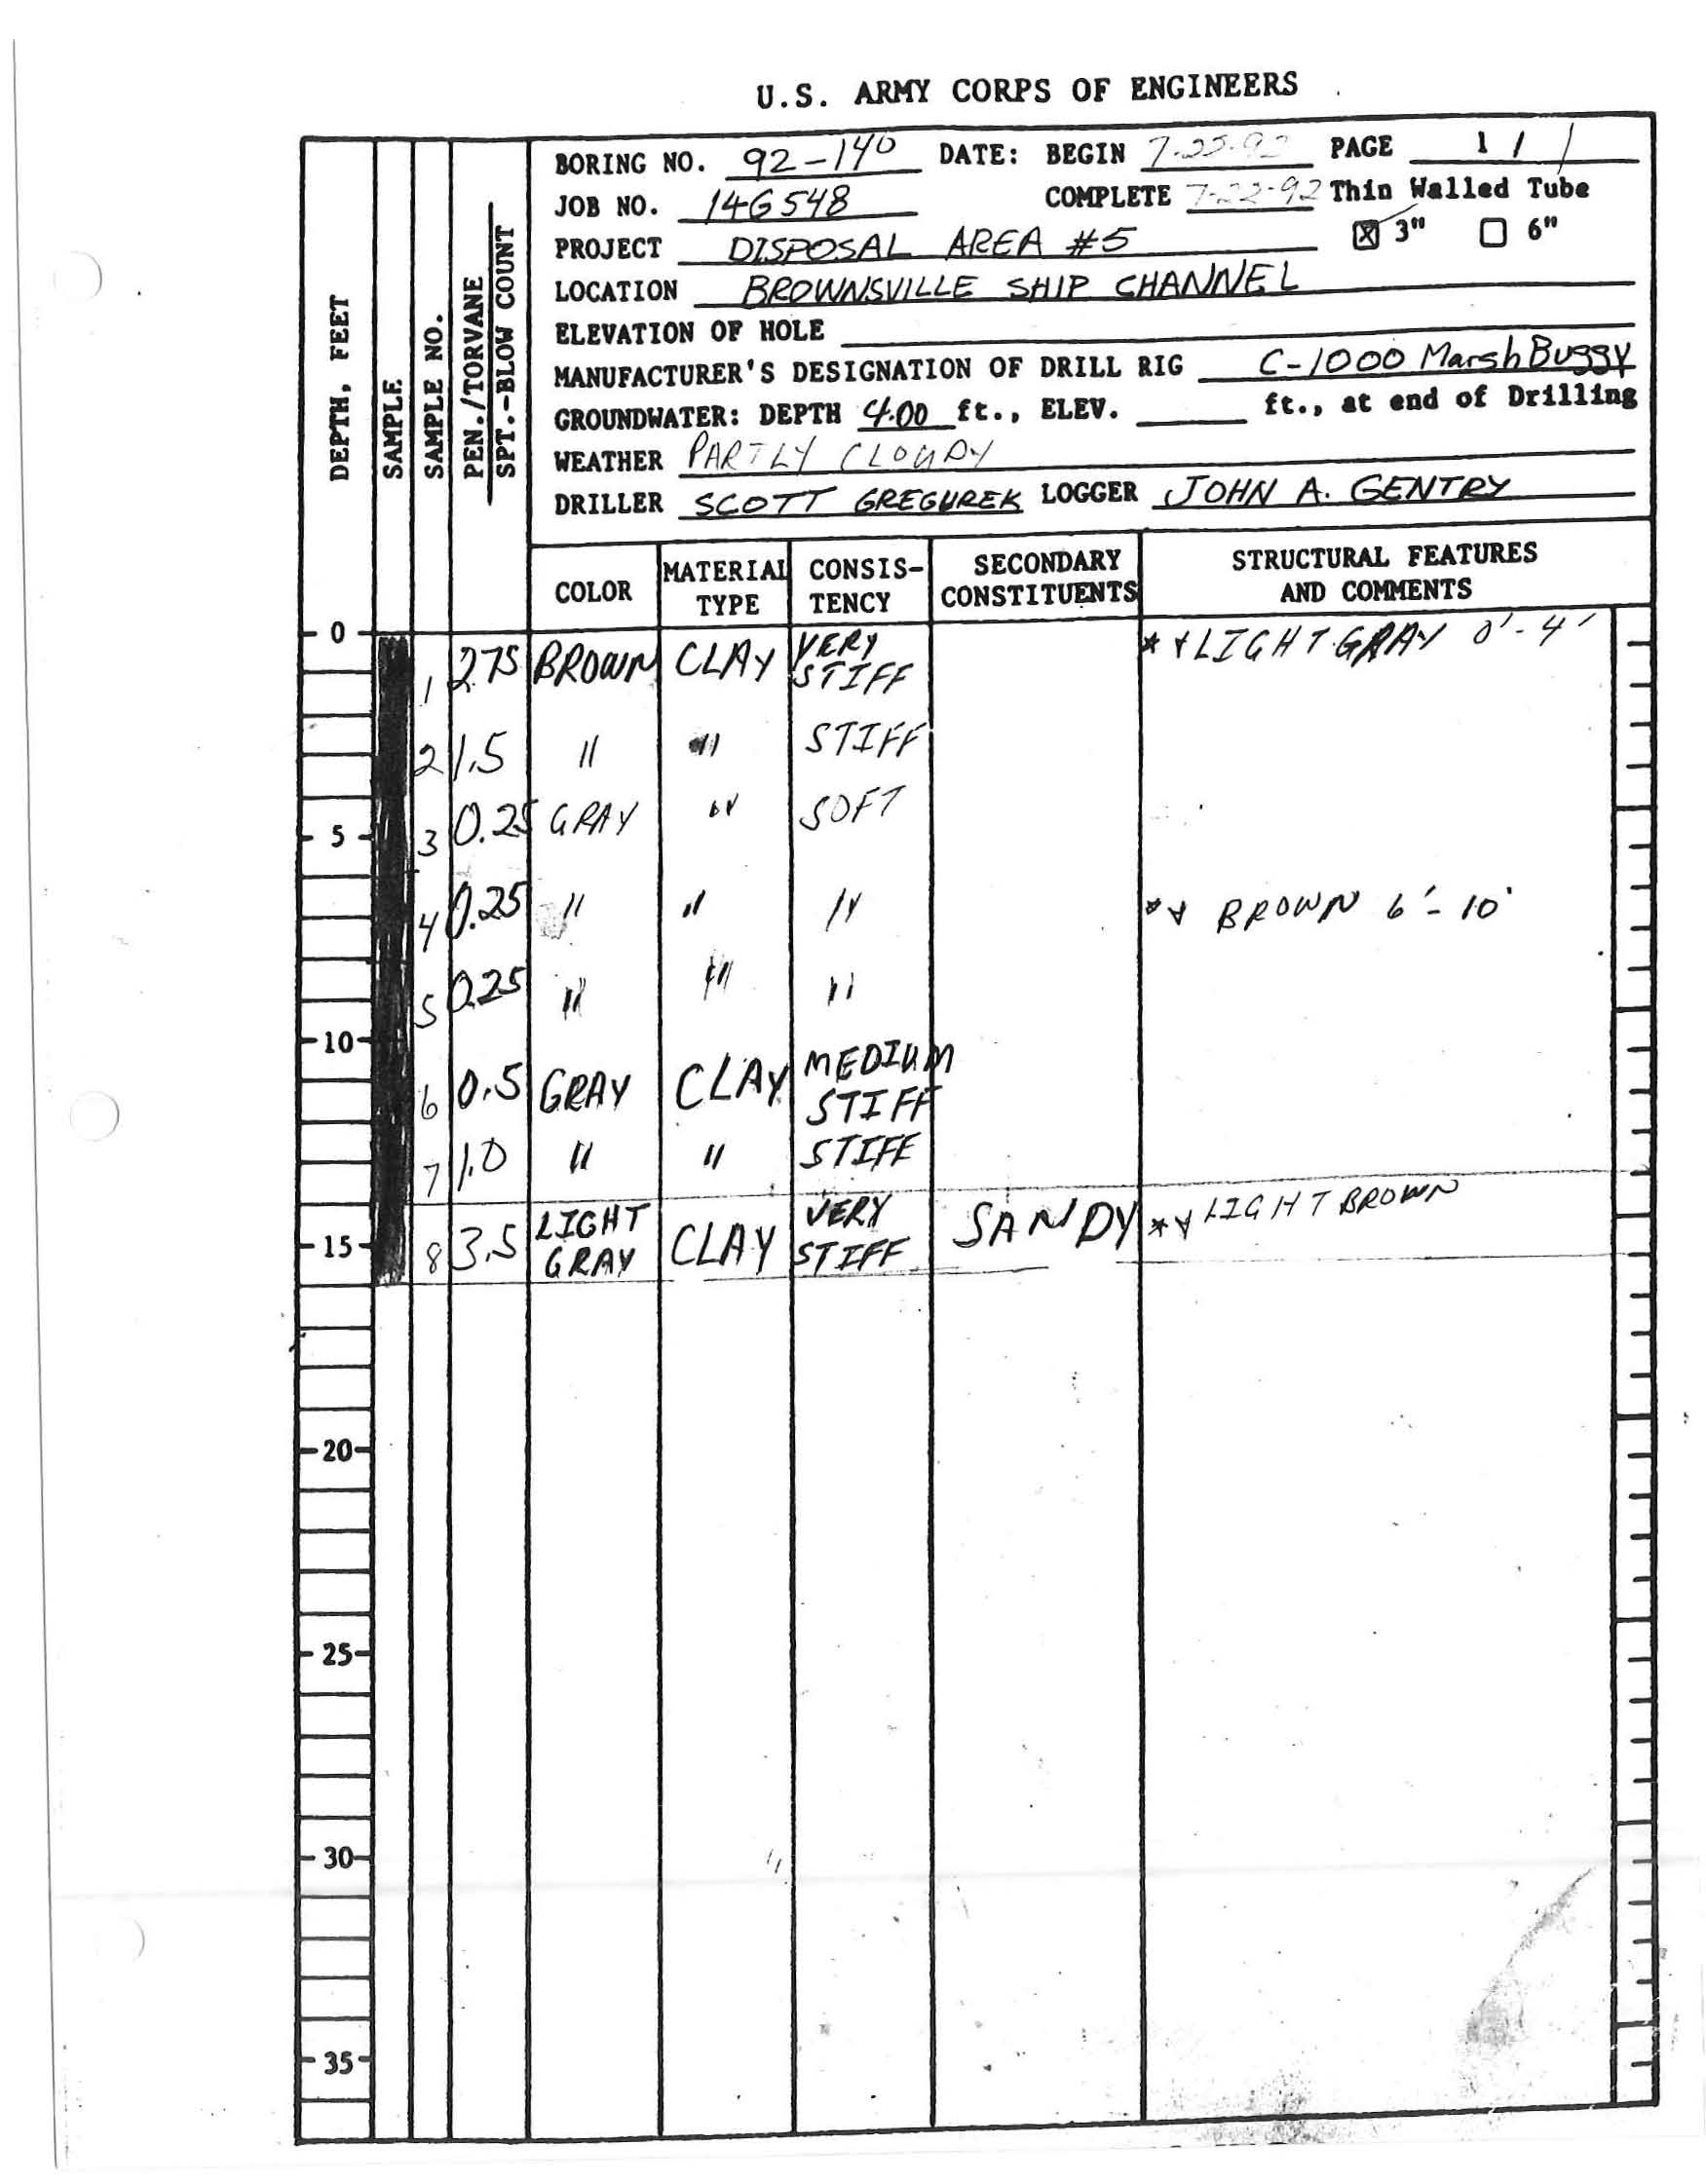 U.S. ARMY CORPS OF ENGINEERS
BORING NO. 92-140 DATE: BEGIN PAGE 1 / 1
JOB NO. 14G548 COMPLETE 7-22-92 Thin Walled Tube
PROJECT DISPOSAL AREA #5 ☒ 3" ☐ 6"
LOCATION BROWNSVILLE SHIP CHANNEL
ELEVATION OF HOLE
MANUFACTURER'S DESIGNATION OF DRILL RIG C-1000 Marsh Buggy
GROUNDWATER: DEPTH 4.00 ft., ELEV. ft., at end of Drilling
WEATHER PARTLY CLOUDY
DRILLER SCOTT GREGUREK LOGGER JOHN A. GENTRY
DEPTH, FEET
SAMPLE
SAMPLE NO.
PEN./TORVANE
SPT.-BLOW COUNT
COLOR
MATERIAL
TYPE
CONSIS-
TENCY
SECONDARY
CONSTITUENTS
STRUCTURAL FEATURES
AND COMMENTS
0
1 2.75 BROWN CLAY VERY STIFF LIGHT GRAY 0'-4'
2 1.5 " " STIFF
5
3 0.25 GRAY " SOFT
4 0.25 " " " BROWN 6'-10'
5 0.25 " " "
10
6 0.5 GRAY CLAY MEDIUM STIFF
7 1.0 " " STIFF
15
8 3.5 LIGHT GRAY CLAY VERY STIFF SANDY LIGHT BROWN
20
25
30
35